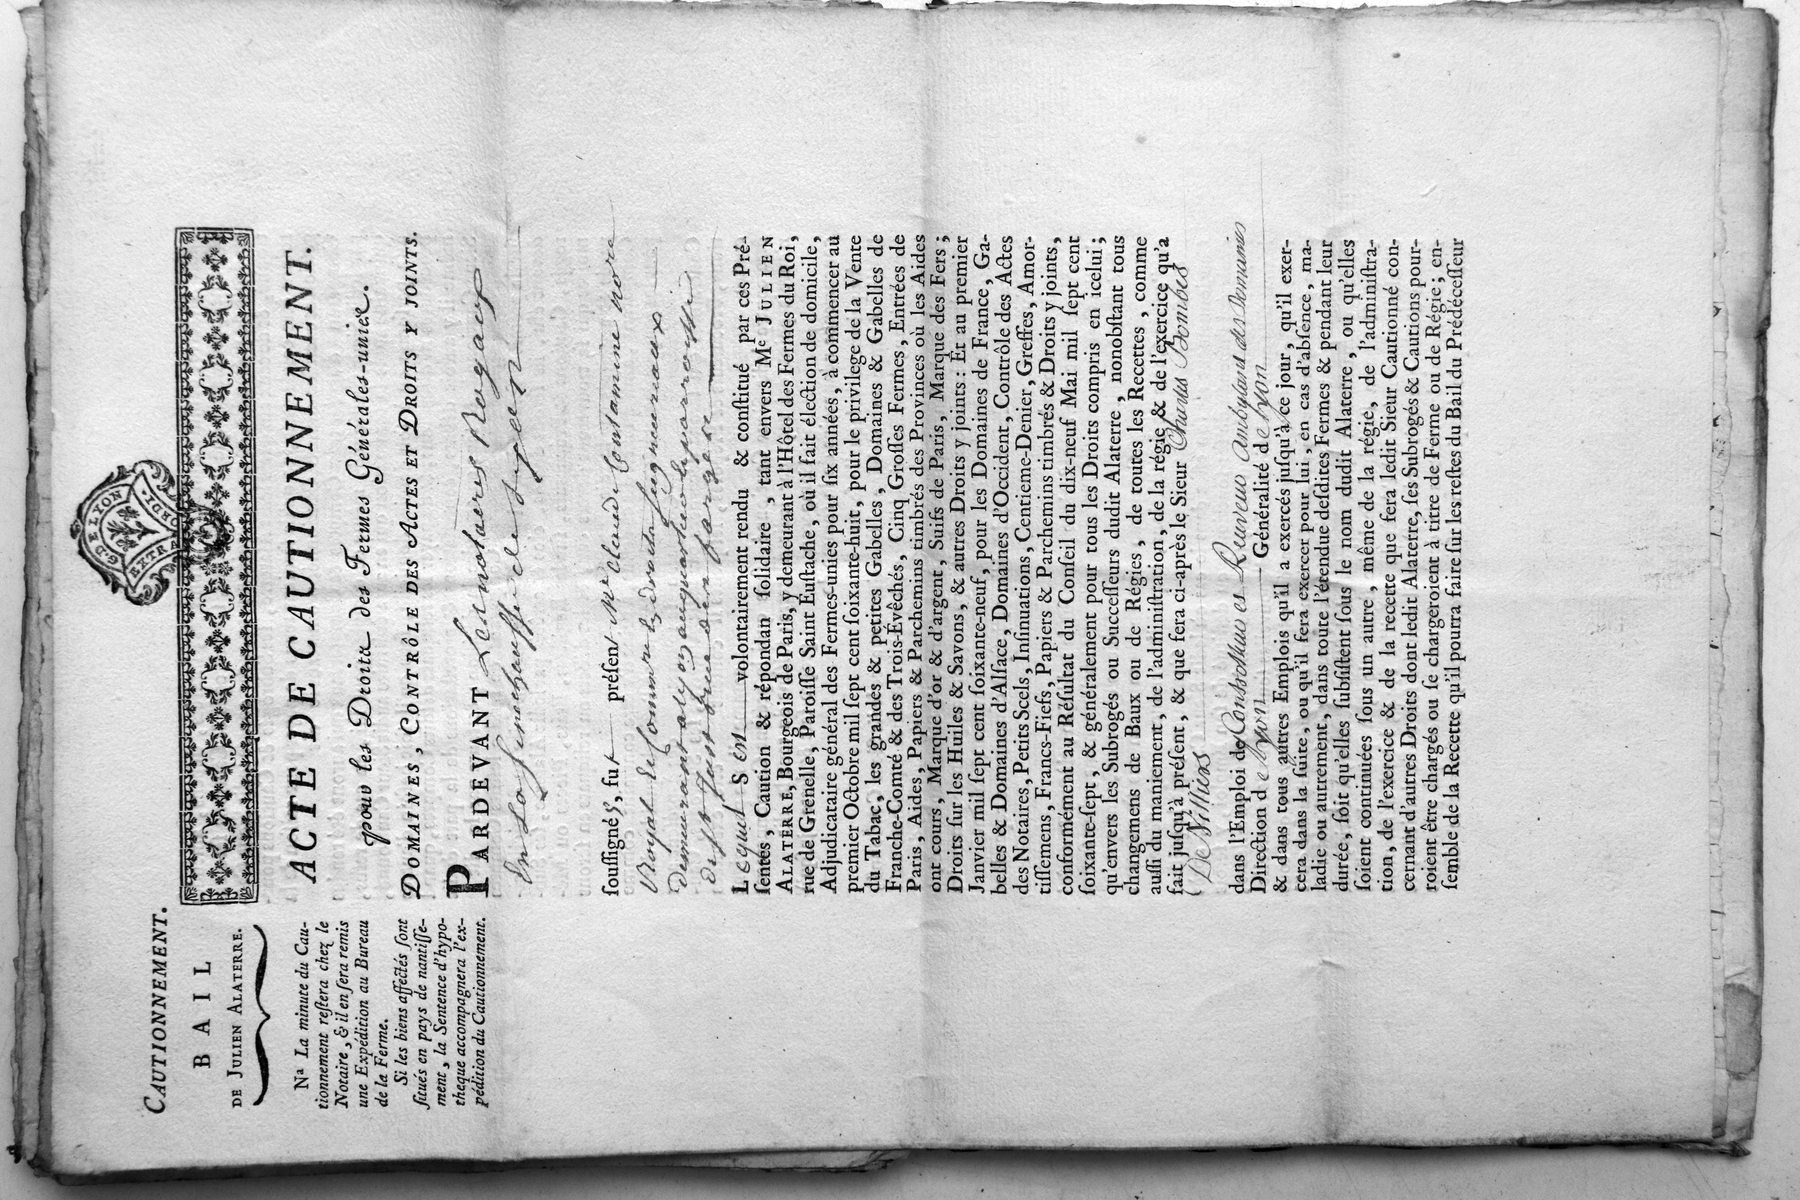 CAUTIONNEMENT.
BAIL
DE JULIEN ALATERRE.
Nª La minute du Cau-
tionnement reſtera chez le
Notaire, & il en ſera remis
une Expédition au Bureau
de la Ferme.
Si les biens affectés ſont
ſitués en pays de nantiſſe-
ment, la Sentence d'hypo-
theque accompagnera l'ex-
pédition du Cautionnement.
G. DE LYON
EXTRAORDI.
ACTE DE CAUTIONNEMENT.
pour les Droits des Fermes Générales-unies.
DOMAINES, CONTRÔLE DES ACTES ET DROITS Y JOINTS.
PARDEVANT Les notaires Royaux
en la Senechaussée de Lyon
ſouſſignés, fut présent Me Claude Contamine
Royal
demeurant a Lyon
Lequel S'est volontairement rendu & conſtitué par ces Pré-
ſentes, Caution & répondan ſolidaire, tant envers Me JULIEN
ALATERRE, Bourgeois de Paris, y demeurant à l'Hôtel des Fermes du Roi,
rue de Grenelle, Paroiſſe Saint Euſtache, où il fait élection de domicile,
Adjudicataire général des Fermes-unies pour ſix années, à commencer au
premier Octobre mil ſept cent ſoixante-huit, pour le privilege de la Vente
du Tabac, les grandes & petites Gabelles, Domaines & Gabelles de
Franche-Comté & des Trois-Evêchés, Cinq Groſſes Fermes, Entrées de
Paris, Aides, Papiers & Parchemins timbrés des Provinces où les Aides
ont cours, Marque d'or & d'argent, Suifs de Paris, Marque des Fers;
Droits ſur les Huiles & Savons, & autres Droits y joints: Et au premier
Janvier mil ſept cent ſoixante-neuf, pour les Domaines de France, Ga-
belles & Domaines d'Alſace, Domaines d'Occident, Contrôle des Actes
des Notaires, Petits Scels, Inſinuations, Centieme-Denier, Greffes, Amor-
tiſſemens, Francs-Fiefs, Papiers & Parchemins timbrés & Droits y joints,
conformément au Réſultat du Conſeil du dix-neuf Mai mil ſept cent
ſoixante-ſept, & généralement pour tous les Droits compris en icelui;
qu'envers les Subrogés ou Succeſſeurs dudit Alaterre, nonobſtant tous
changemens de Baux ou de Régies, de toutes les Recettes, comme
auſſi du maniement, de l'adminiſtration, de la régie & de l'exercice qu'a
fait juſqu'à préſent, & que fera ci-après le Sieur Charles Bombes
De Villiers
dans l'Emploi de Controlleur et Receveur Ambulant des Domaines
Direction de Lyon Généralité de Lyon
& dans tous autres Emplois qu'il a exercés juſqu'à ce jour, qu'il exer-
cera dans la ſuite, ou qu'il fera exercer pour lui, en cas d'abſence, ma-
ladie ou autrement, dans toute l'étendue deſdites Fermes & pendant leur
durée, ſoit qu'elles ſubſiſtent ſous le nom dudit Alaterre, ou qu'elles
ſoient continuées ſous un autre, même de la régie, de l'adminiſtra-
tion, de l'exercice & de la recette que fera ledit Sieur Cautionné con-
cernant d'autres Droits dont ledit Alaterre, ſes Subrogés & Cautions pour-
roient être chargés ou ſe chargeroient à titre de Ferme ou de Régie; en-
ſemble de la Recette qu'il pourra faire ſur les reſtes du Bail du Prédéceſſeur